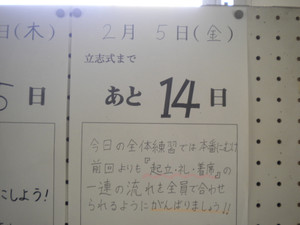 日(木)
5日
にしよう!
2月 5日(金)
立志式まで
あと14日
今日の全体練習では本番にむけ
前回よりも『起立・礼・着席』の
一連の流れを全員で合わせ
られるようにがんばりましょう!!